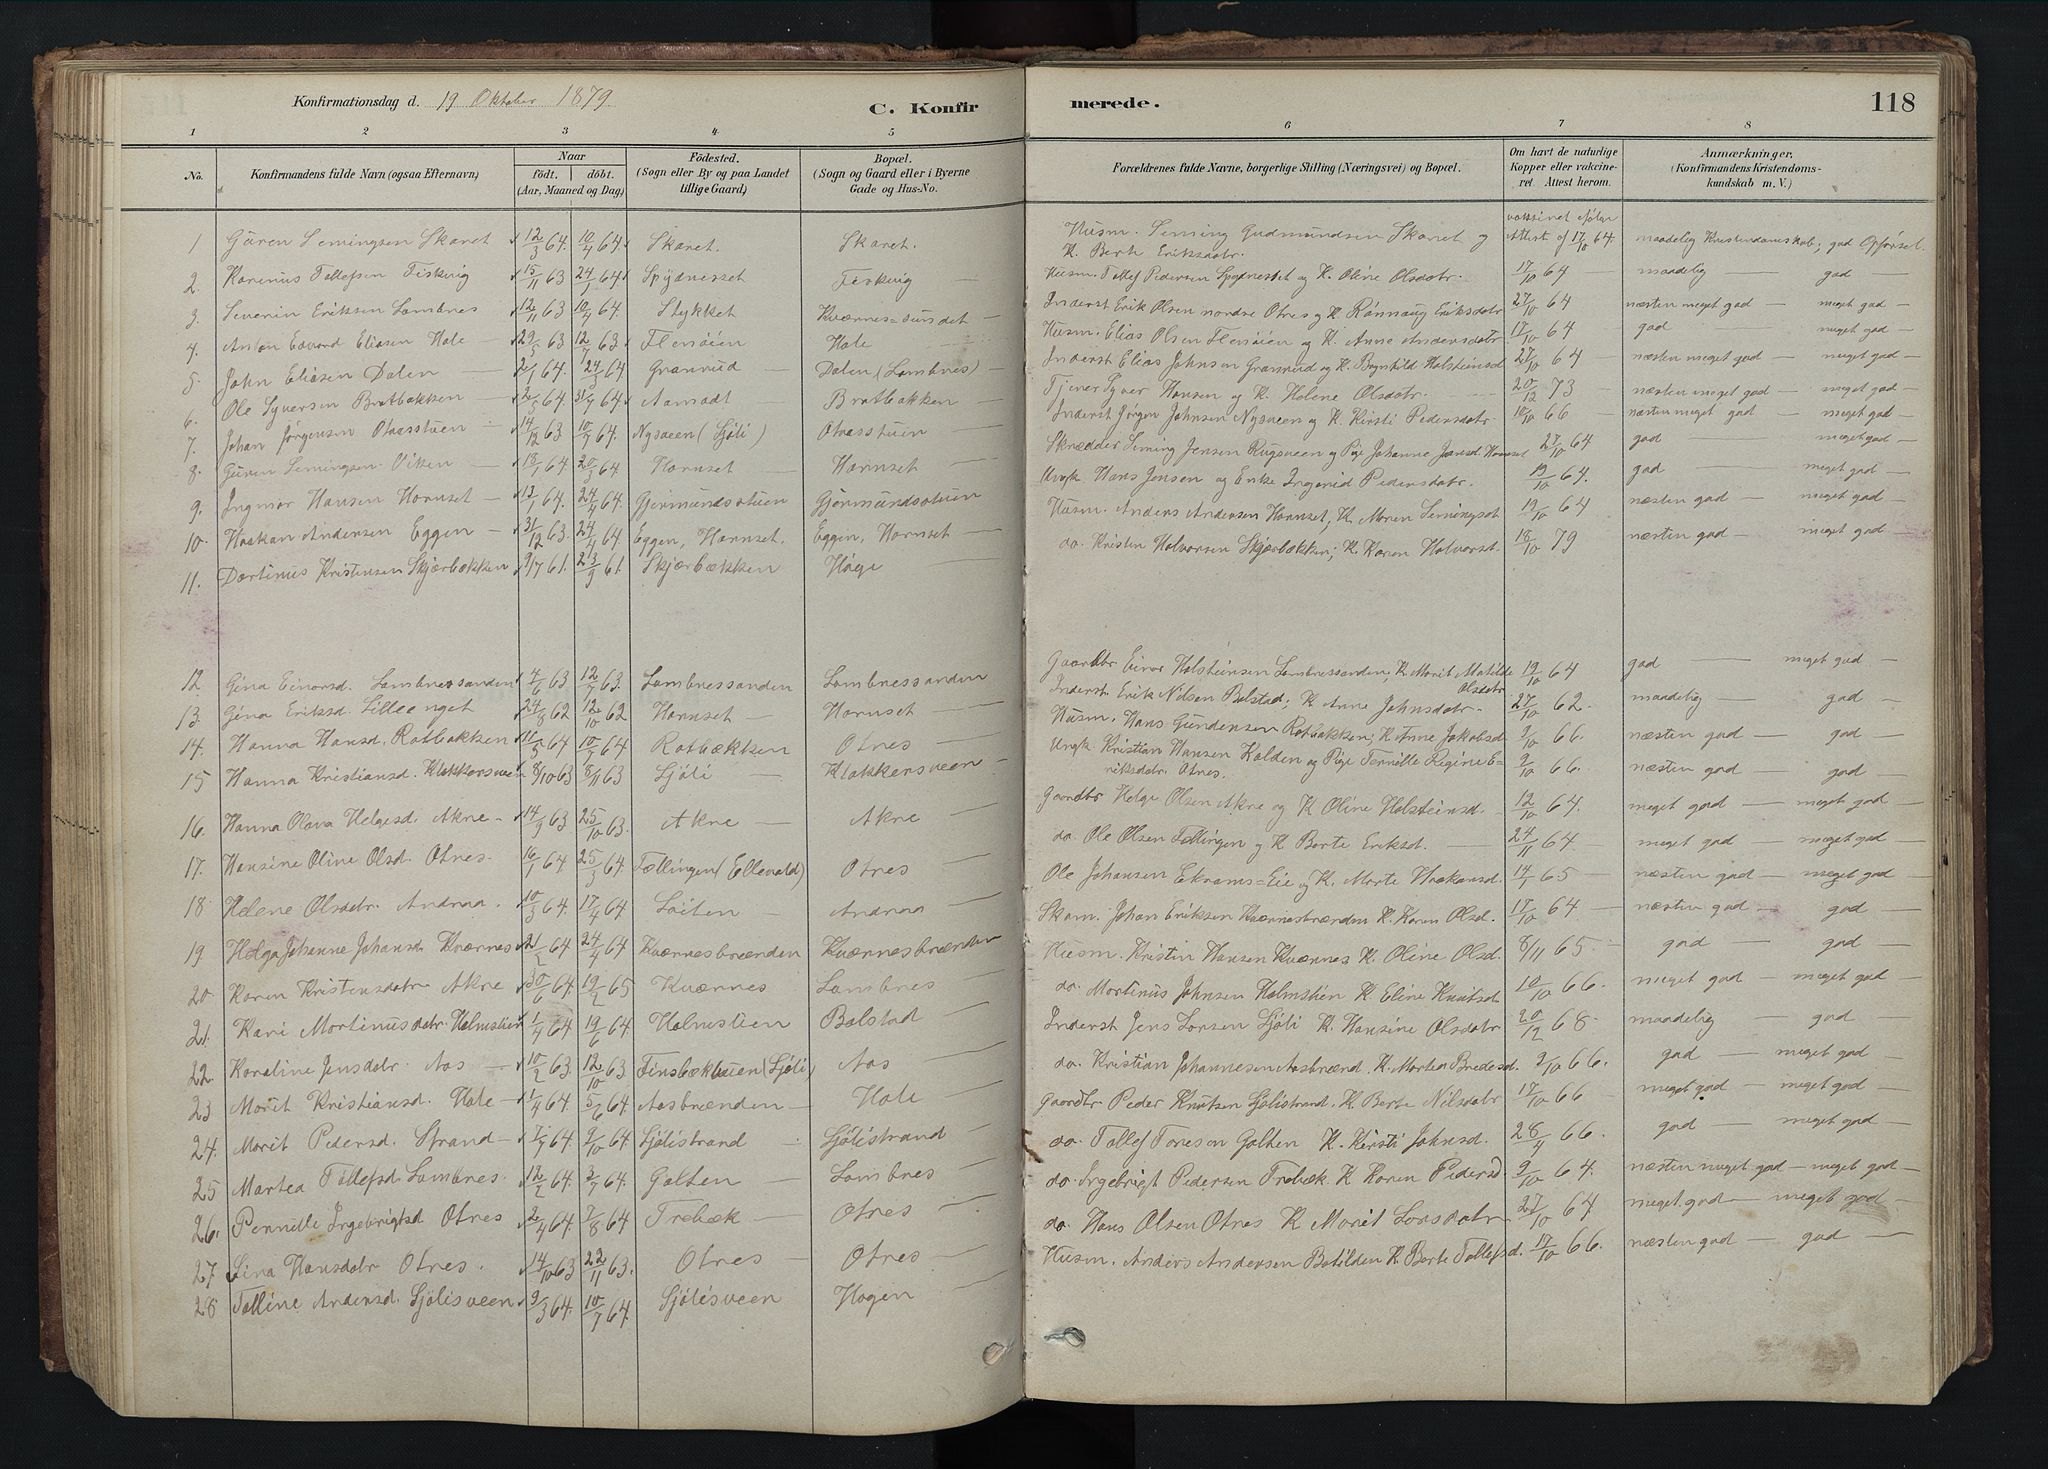 Konfirmationsdag d. 19 Oktober 1879.
C. Konfirmerede.
118
1 2 3 4 5 6 7 8
No.
Konfirmandens fulde Navn (ogsaa Efternavn)
Naar
födt. döbt.
(Aar, Maaned og Dag)
Födested.
(Sogn eller By og paa Landet
tillige Gaard)
Bopæl.
(Sogn og Gaard eller i Byerne
Gade og Hus-No.
Forældrenes fulde Navne, borgerlige Stilling (Næringsvei) og Bopæl.
Om havt de naturlige
Kopper eller vakcine-
ret Attest herom.
Anmærkninger.
(Konfirmandens Kristendoms-
kundskab m. V.)
1 Guren Semingsen Skaret 12/3 64. 10/4 64 Skaret. Skaret. Husm. Seming Gudmundsen Skaret og K. Berte Eriksdatr. Attest af 17/10 64. maadelig Kristendomskab; god Opførsel
2. Karenus Tollefsen Fiskvig 15/11 63 24/1 64 Spydnesset Fiskvig — Husm. Tollef Pedersen Spydnesset og K. Oline Olsdatr. 17/10 64 maadelig god —
3. Severin Eriksen Lombnes 12/11 63 10/4 64. Stykket Kværnes=sundet — Inderst Erik Olsen nordre Otnes og K. Rönnaug Eriksdatr 27/10 64 næsten meget god — meget god —
4. Anton Edvard Eliasen Hole 29/5 63 12/7 63 Flenöien Hole Husm. Elias Olsen Flenöien og K. Anne Andersdatr. 17/10 64 god meget god —
5. John Eliasen Dalen 2/1 64. 24/3 64 Granrud Dalen (Lombnes) — Inderst Elias Johnsen Granrud og K. Brynhild Holsteinsd 27/10 64 — næsten meget god — meget god —
6. Ole Syversen Bratbakken 2/5 64. 31/7 64 Aamodt Bratbakken — Tjener Syver Hansen og K. Helene Olsdatr. 20/12 73 — næsten meget god — meget god —
7. Johan Jörgensen Otnesstuen 14/12 63 10/7 64. Nysveen (Sjöli) Otnesstuen Inderst Jörgen Johnsen Nysveen og K. Kirsti Pedersdatr 10/10 66 næsten meget god — meget god —
8. Guren Semingsen Viken 18/1 64 20/3 64 Hornset — Hornset — Skrædder Seming Jensen Rugsveen og Pige Johanne Jensd Hornset 27/10 64 god meget god —
9. Ingmar Hansen Hornset 13/1 64. 24/4 64. Gjermundsstuen Gjermundsstuen Ungk Hans Jensen og Enke Ingerid Pedersdatr. 13/10 64. god meget god —
10. Haakan Andersen Eggen 31/12 63. 24/4 64 Eggen, Hornset. Eggen, Hornset Husm. Anders Andersen Hornset, K. Maren Semingsd 19/10 64 næsten god — meget god —
11. Dortinus Kristensen Skjærbækken 9/7 61. 23/9 61. Skjærbækken Hage — do. Kristen Halvorsen Skjærbækken; K. Karen Halvorsd. 18/10 79 næsten god — meget god —
12. Gina Einarsd. Lombnessanden 4/6 63 12/7 63. Lombnessanden Lombnessanden Gaardbr Einar Holsteinsen Lombnessanden, K. Marit Matilde Olsdatr 19/10 64 god — meget god —
13. Gina Eriksd. Lilleenget 24/8 62 12/10 62 Hornset — Hornset — Inderst Erik Nilsen Bolstad; K Anne Johnsdatr. 27/10 62. maadelig god —
14. Hanna Hansd. Rotbakken 11/5 64 10/7 64 Rotbækken Otnes — Husm. Hans Gundersen Rotbakken; K. Anne Jakobsd 9/10 66. næsten god — god —
15 Hanna Kristiansd. Klokkersveen 8/10 63 8/11 63 Sjöli — Klokkersveen — Ungk Kristian Hansen Kolden og Pige Pernille Regine E=riksdatr. Otnes. 9/10 66. næsten god — god —
16. Hanna Olava Helgesd. Akre. 14/9 63 25/10 63. Akre — Akre — Gaardbr Helge Olsen Akre og K Oline Holsteinsd. 12/10 64. meget god — meget god —
17. Hansine Oline Olsd. Otnes. 16/1 64. 25/3 64. Tællingen (Ellevold) Otnes do. Ole Olsen Tellingen og K Berte Eriksd. 24/11 64. meget god — meget god —
18 Helene Olsdatr. Andraa. 10/3 64. 17/4 64 Loiten — Andraa — Ole Johansen Ekrams=Eie og K. Marte Haakansd. 14/1 65 næsten god — meget god —
19 Helga Johanne Johansd Kværnes 21/2 64 24/4 64 Kværnesbrænden Kværnesbrænden Skom. Johan Eriksen Kværnesbrænden K. Karen Olsd. 17/10 64 — næsten god — god —
20 Karen Kristensdatr. Akre 30/6 64. 19/2 65 Kværnes Lombnes Husm. Kristen Hansen Kværnes K. Oline Olsd. 8/11 65 god — god —
21. Kari Mortinusdatr. Holmstien 1/4 64 19/6 64. Holmstien Bolstad — do. Mortinus Johnsen Holmstien K. Eline Knutsd. 10/10 66. meget god — meget god —
22. Karoline Jensdatr. Aos 10/2 63. 12/10 63 Finsbækbuen (Sjöli) Aos — Inderst Jens Larsen Sjöli K. Hansine Olsdatr 20/12 68 maadelig god —
23 Marit Kristiansd. Hole — 1/4 64. 5/6 64 Aasbrænden — Hole do. Kristian Johannesen Aasbrænd. K. Martea Bredesd. 9/10 66. god — meget god —
24. Marit Pedersd. Strand 7/7 64. 9/10 64 Sjölistrand Sjölistrand Gaardbr. Peder Knutsen Sjölistrand. K. Berte Nilsdatr 17/10 66 meget god — meget god —
25 Martea Tollefsd Lombnes. 12/2 64. 3/7 64. Galten — Lombnes — do. Tollef Toresen Galten K. Kirsti Johnsd. 28/4 66. god — meget god —
26. Pernille Ingebrigtsd Otnes 2/4 64. 7/8 64 Trebæk — Otnes do. Ingebrigt Pedersen Trebæk. K Karen Pedersd. 9/10 64. næsten meget god — meget god —
27 Sina Hansdatr Otnes. 14/10 63 22/11 63. Otnes Otnes — do. Hans Olsen Otnes K Marit Larsdatr 27/10 64 meget god — meget god —
28 Talline Andersd. Sjölisveen 9/3 64. 10/7 64. Sjölisveen Hagen — Husm. Anders Andersen Botilden K. Berte Tollefsd. 17/10 66. næsten god — god —